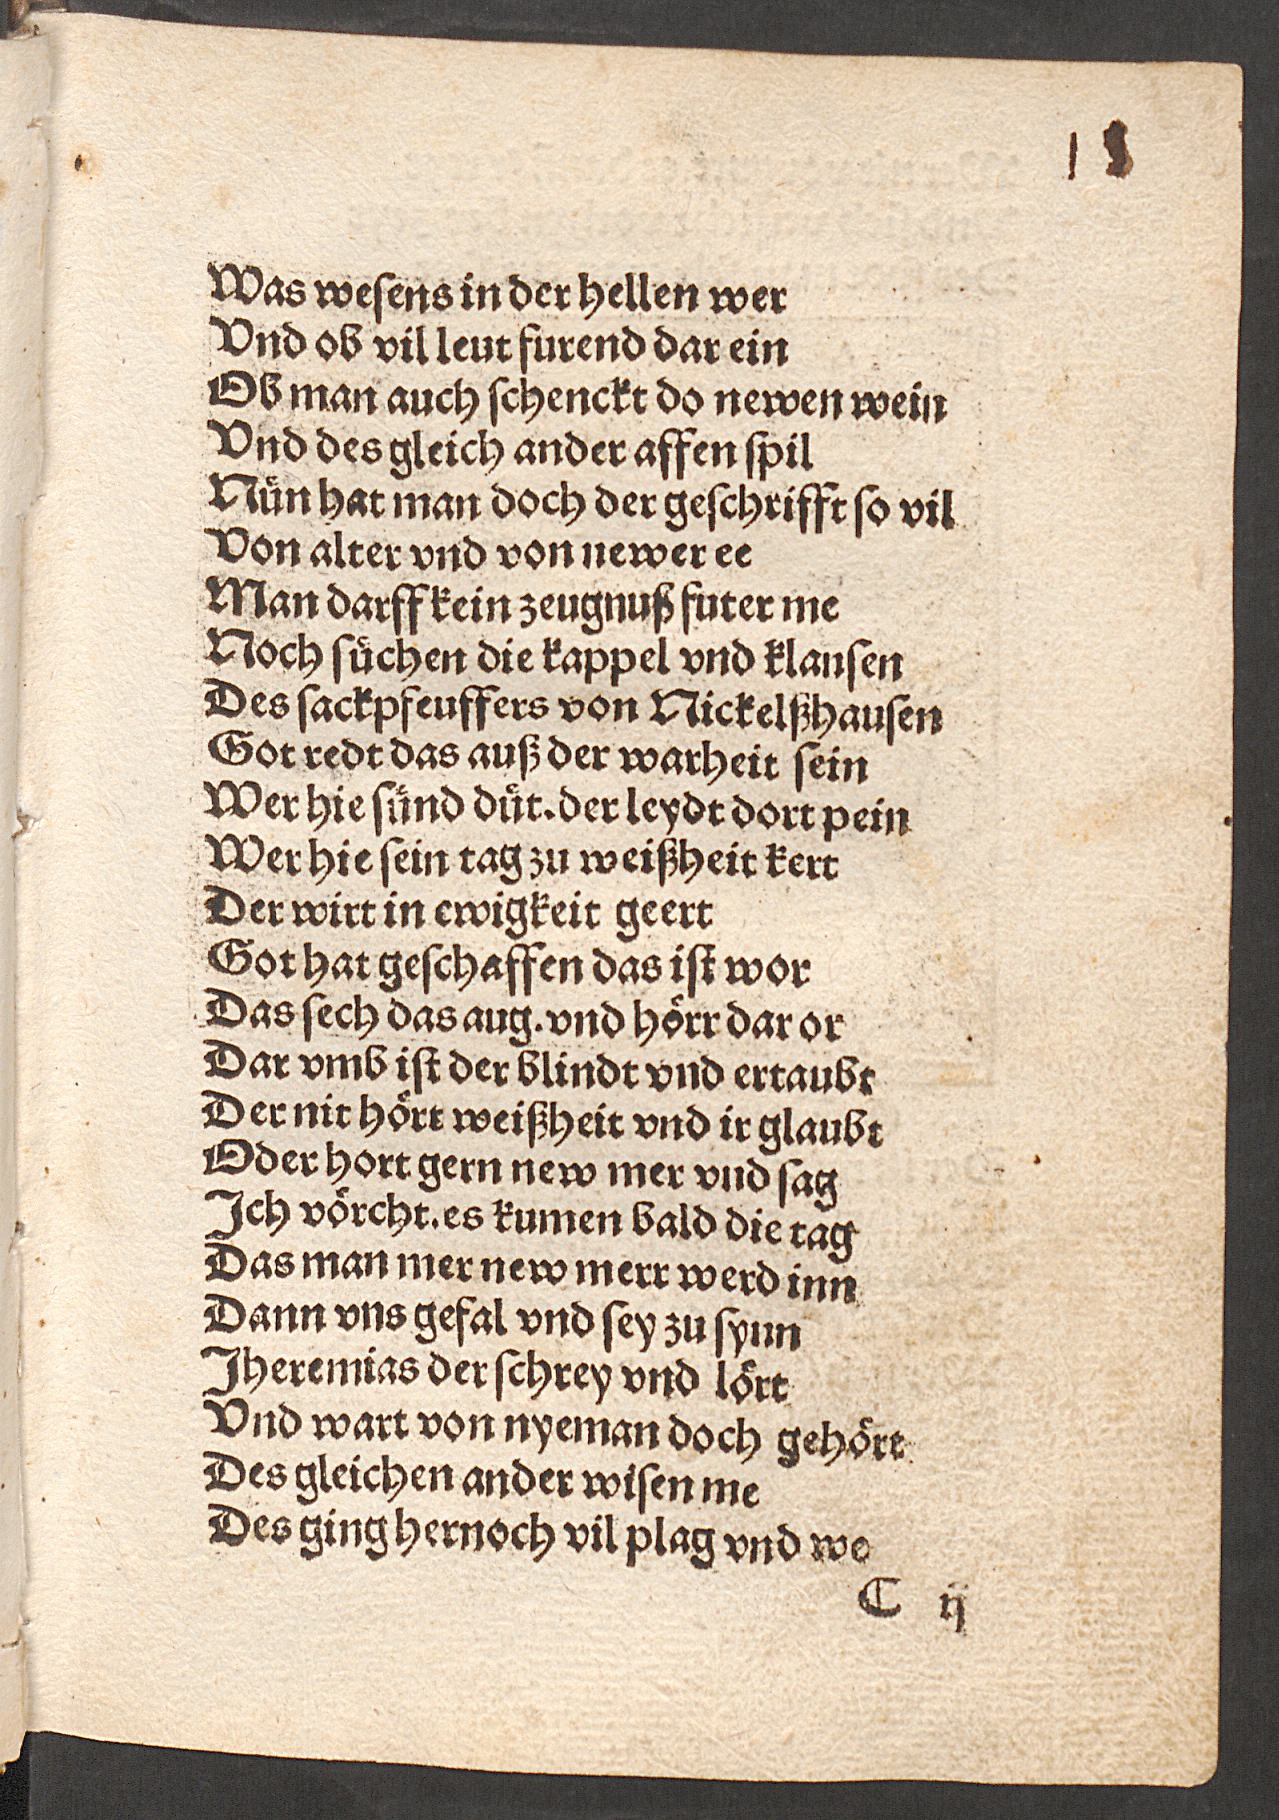 18
Was weſens in der hellen wer
Vnd ob vil leut furend dar ein
Ob man auch ſchenckt do newen wein
Vnd des gleich ander affen ſpil
Nuͤn hat man doch der geſchrifft ſo vil
Von alter vnd von newer ee
Man darff kein zeugnuß futer me
Noch ſuͤchen die kappel vnd klanſen
Des ſackpfeuffers von Nickelßhauſen
Got redt das auß der warheit ſein
Wer hie ſuͤnd duͤt. der leydt dort pein
Wer hie ſein tag zu weißheit kert
Der wirt in ewigkeit geert
Got hat geſchaffen das iſt wor
Das ſech das aug. vnd hoͤrr dar or
Dar vmb iſt der blindt vnd ertaubt
Der nit hoͤrt weißheit vnd ir glaubt
Oder hort gern new mer vnd ſag
Jch voͤrcht. es kumen bald die tag
Das man mer new merr werd inn
Dann vns gefal vnd ſey zu ſynn
Jheremias der ſchrey vnd loͤrt
Vnd wart von nyeman doch gehoͤrt
Des gleichen ander wiſen me
Des ging hernoch vil plag vnd we
C ij